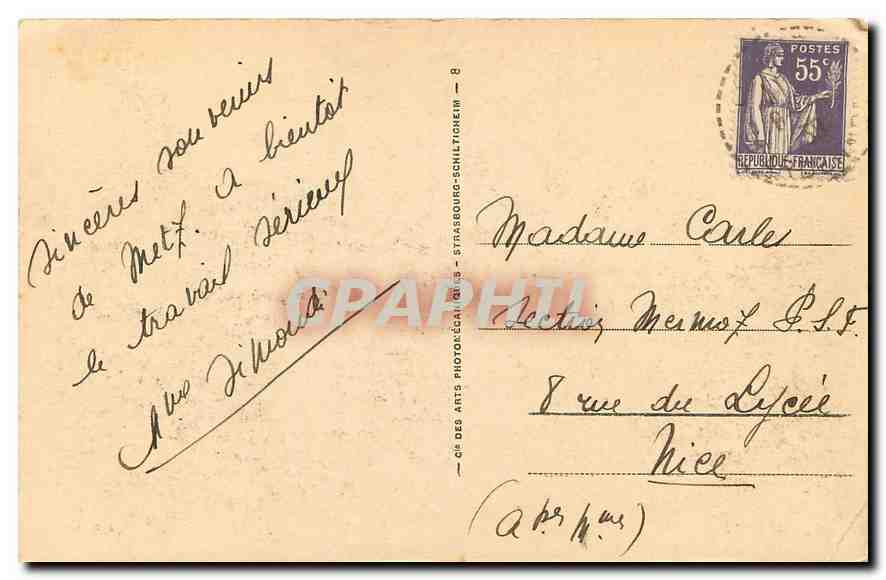 Sincères souvenirs
de Metz. A bientôt
le travail sérieux
Mme Simondi
Cie DES ARTS PHOTOMÉCANIQUES - STRASBOURG-SCHILTIGHEIM - 8
POSTES
55c
REPUBLIQUE-FRANÇAISE
Madame Carles
Section Mermoz P.S.F.
8 rue du Lycée
Nice
(A pes Mmes)
CPAPHIL